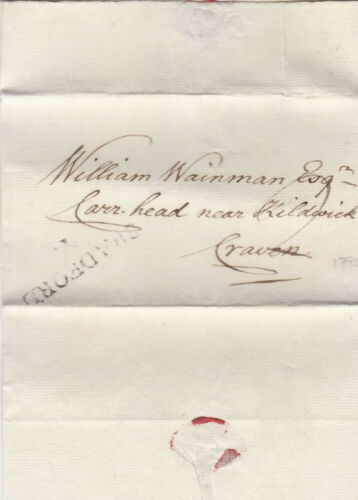 William Wainman Esqr
Carr-head near Kildwick
Craven
BRADFORD